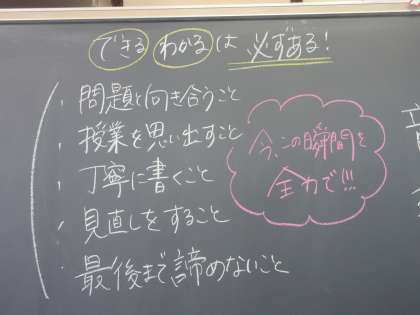 できる わかる は 必ずある!
・問題と向き合うこと
・授業を思い出すこと
・丁寧に書くこと
・見直しをすること
・最後まで諦めないこと
今、この瞬間を
全力で!!!